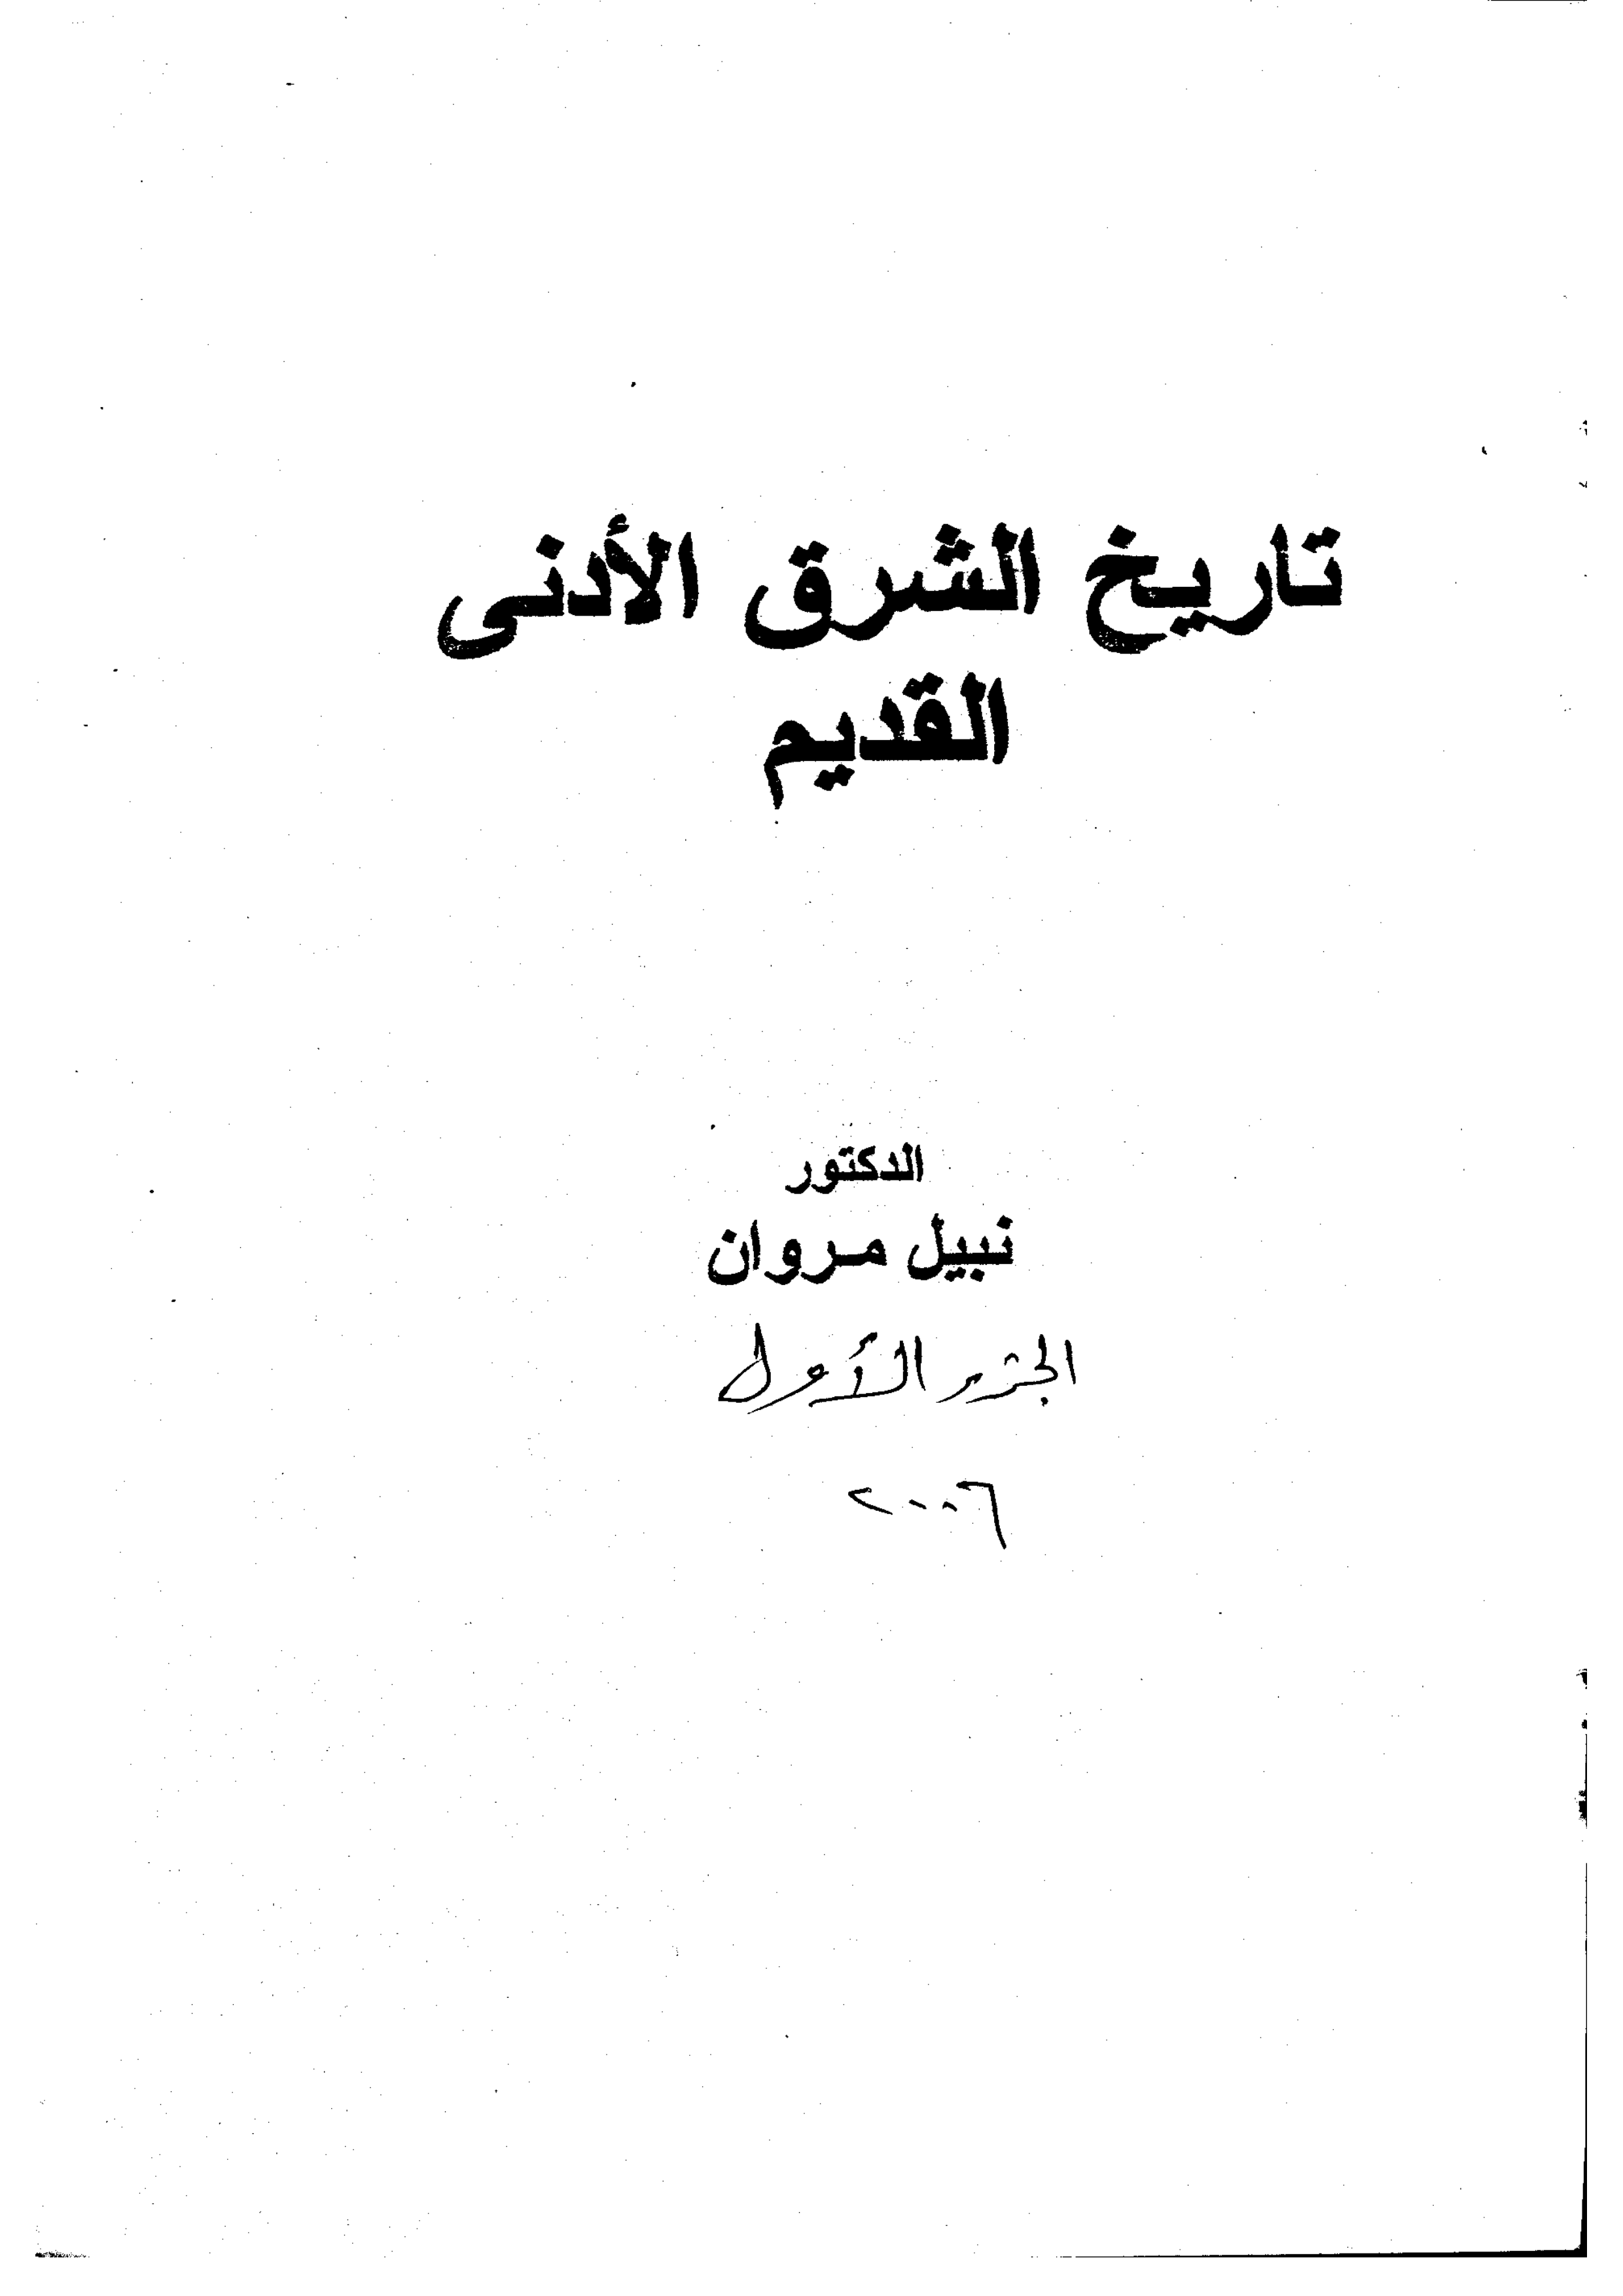 تاريخ الشرق الأدنى
القديم
الدكتور
نبيل مروان
الجزء الأول
٢٠٠٦